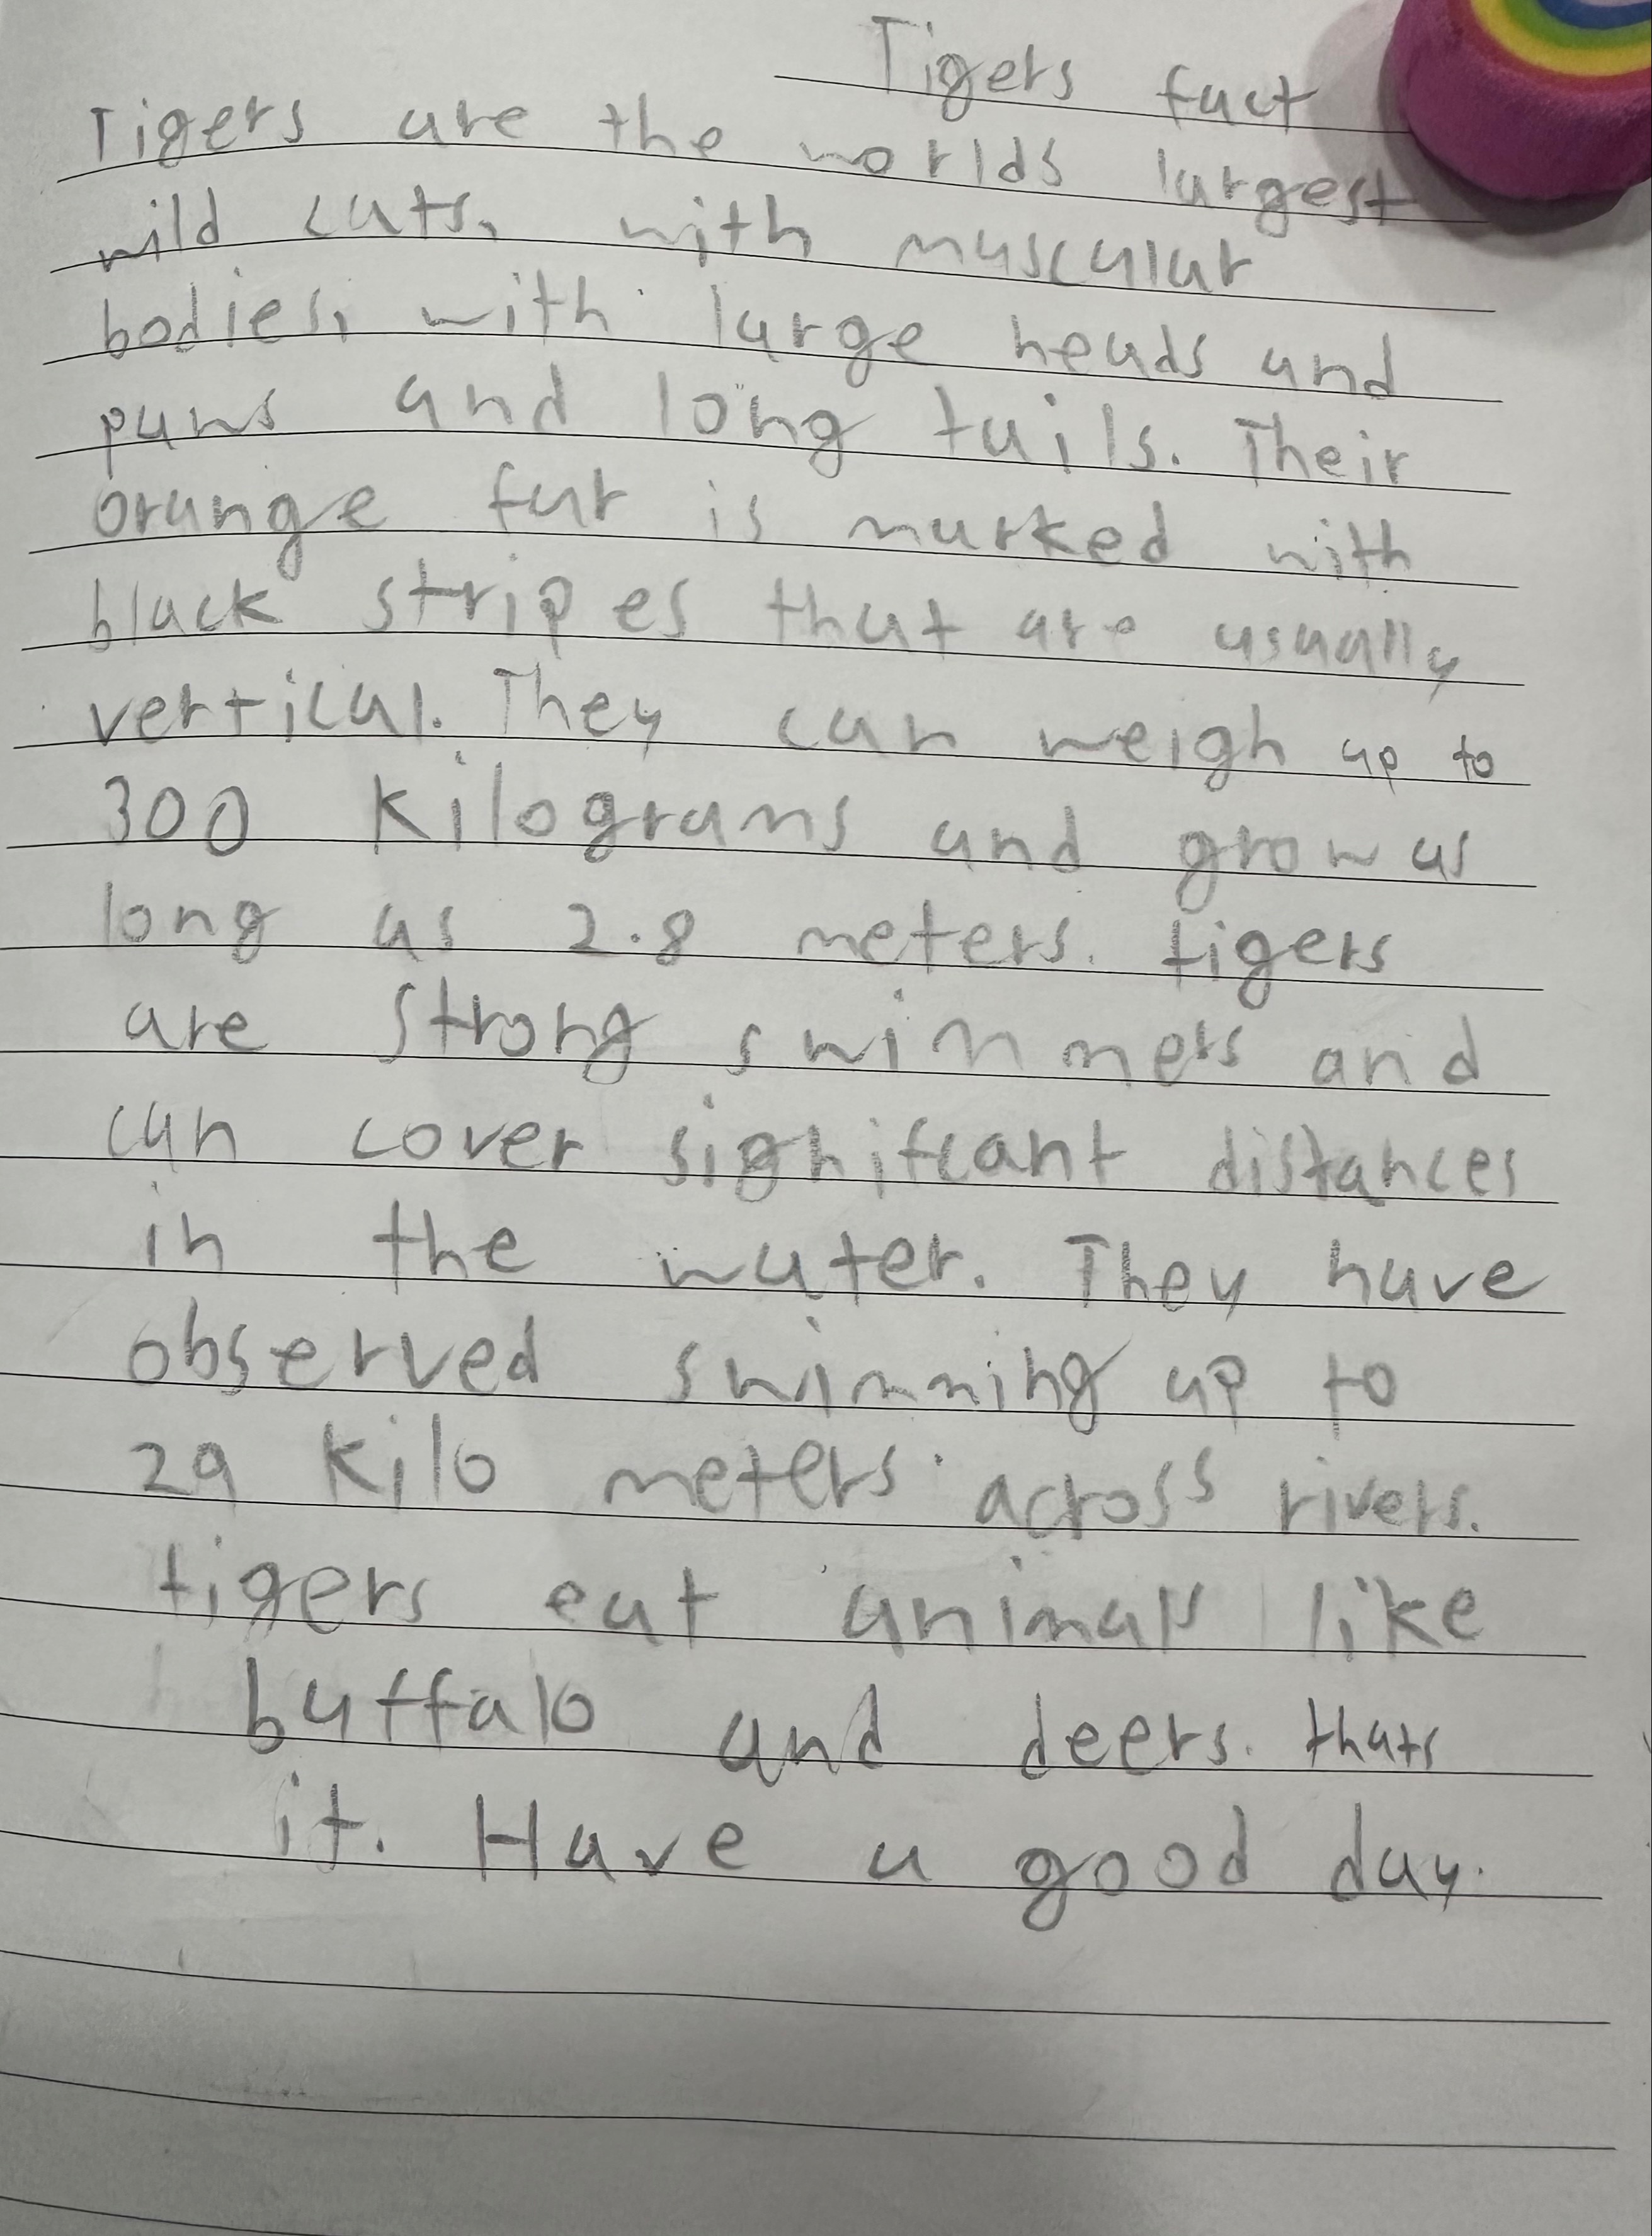 Tigers fact
Tigers are the worlds largest
wild cats, with muscular
bodies, with large heads and
paws and long tails. Their
orange fur is marked with
black stripes that are usually
vertical. They can weigh up to
300 kilograms and grow as
long as 2.8 meters. tigers
are strong swimmers and
can cover signifcant distances
in the water. They have
observed swimming up to
29 kilo meters across rivers.
tigers eat animals like
buffalo and deers. thats
it. Have a good day.